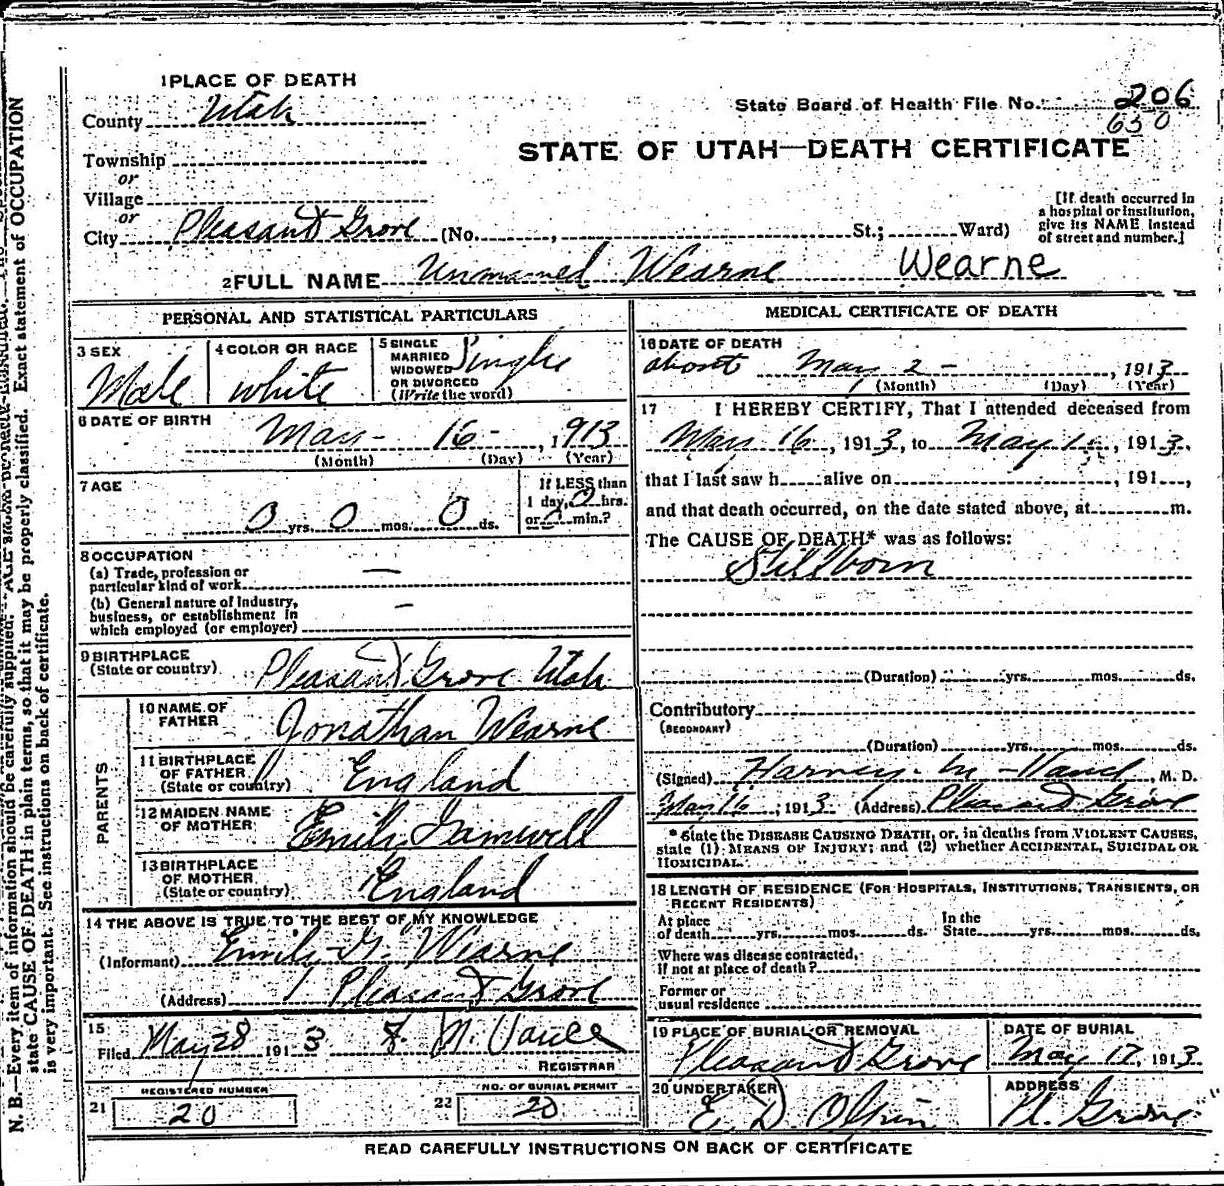 1 PLACE OF DEATH
County Utah
State Board of Health File No. 206
650
Township
or
Village
or
City Pleasant Grove (No. , St.; Ward)
STATE OF UTAH—DEATH CERTIFICATE
[If death occurred in
a hospital or institution,
give its NAME instead
of street and number.]
2 FULL NAME Unnamed Wearne Wearne
PERSONAL AND STATISTICAL PARTICULARS
3 SEX
Male
4 COLOR OR RACE
white
5 SINGLE
MARRIED
WIDOWED
OR DIVORCED
(Write the word)
Single
6 DATE OF BIRTH
May 16 - , 1913
(Month) (Day) (Year)
7 AGE
0 yrs. 0 mos. 0 ds.
If LESS than
1 day, 0 hrs.
or 0 min.?
8 OCCUPATION
(a) Trade, profession or
particular kind of work —
(b) General nature of industry,
business, or establishment in
which employed (or employer) —
9 BIRTHPLACE
(State or country) Pleasant Grove Utah
PARENTS
10 NAME OF
FATHER Jonathan Wearne
11 BIRTHPLACE
OF FATHER
(State or country) England
12 MAIDEN NAME
OF MOTHER Emily Gamwell
13 BIRTHPLACE
OF MOTHER
(State or country) England
14 THE ABOVE IS TRUE TO THE BEST OF MY KNOWLEDGE
(Informant) Emily G. Wearne
(Address) Pleasant Grove
15
Filed May 28 1913
REGISTRAR
REGISTERED NUMBER
21 20
NO. OF BURIAL PERMIT
22 20
MEDICAL CERTIFICATE OF DEATH
16 DATE OF DEATH
about May 2 - , 1913
(Month) (Day) (Year)
17 I HEREBY CERTIFY, That I attended deceased from
May 16, 1913, to May , 1913,
that I last saw h alive on , 191 ,
and that death occurred, on the date stated above, at m.
The CAUSE OF DEATH* was as follows:
Stillborn
(Duration) yrs. mos. ds.
Contributory
(SECONDARY)
(Duration) yrs. mos. ds.
(Signed) , M. D.
May 16, 1913 (Address) Pleasant Grove
* State the DISEASE CAUSING DEATH, or, in deaths from VIOLENT CAUSES,
state (1) MEANS OF INJURY; and (2) whether ACCIDENTAL, SUICIDAL OR
HOMICIDAL.
18 LENGTH OF RESIDENCE (FOR HOSPITALS, INSTITUTIONS, TRANSIENTS, OR
RECENT RESIDENTS)
At place
of death yrs. mos. ds.
In the
State yrs. mos. ds.
Where was disease contracted,
If not at place of death?
Former or
usual residence
19 PLACE OF BURIAL OR REMOVAL
Pleasant Grove
DATE OF BURIAL
May 17, 1913
20 UNDERTAKER
E. D. Olpin
ADDRESS
Pl. Grove
READ CAREFULLY INSTRUCTIONS ON BACK OF CERTIFICATE
N. B.—Every item of information should be carefully supplied. AGE should be properly classified. Exact statement of OCCUPATION
state CAUSE OF DEATH in plain terms, so that it may be properly classified.
is very important. See instructions on back of certificate.